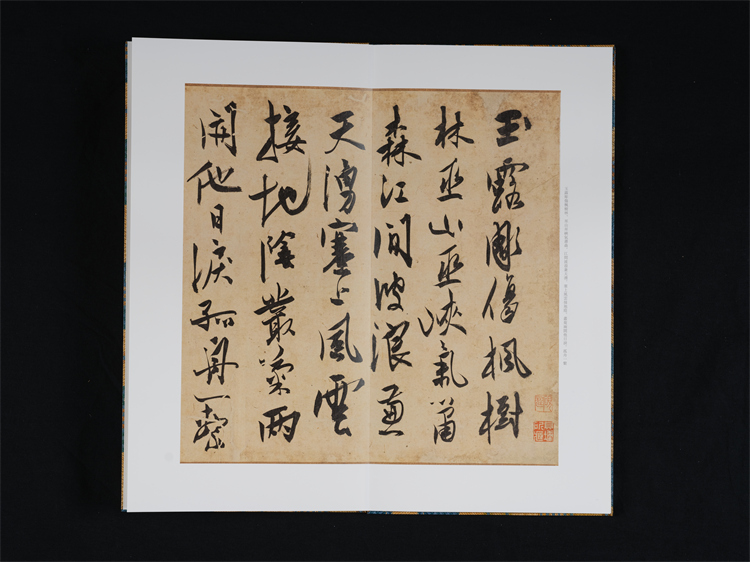 玉露彫傷楓樹
林巫山巫峽氣蕭
森江間波浪兼
天湧塞上風雲
接地陰叢菊兩
開他日淚孤舟一繫